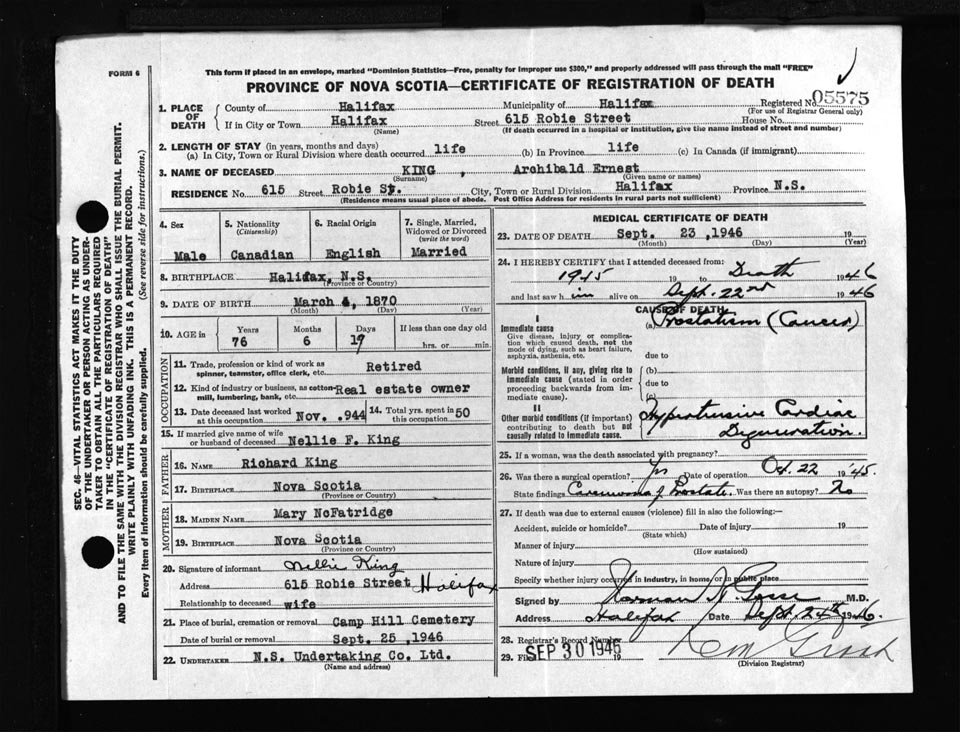 FORM 6
This form if placed in an envelope, marked "Dominion Statistics—Free, penalty for improper use $300," and properly addressed will pass through the mail "FREE"
PROVINCE OF NOVA SCOTIA—CERTIFICATE OF REGISTRATION OF DEATH
1. PLACE OF DEATH County of Halifax Municipality of Halifax Registered No. 05575
(For use of Registrar General only)
If in City or Town Halifax Street 615 Robie Street House No.
(Name) (If death occurred in a hospital or institution, give the name instead of street and number)
2. LENGTH OF STAY (in years, months and days)
(a) In City, Town or Rural Division where death occurred life (b) In Province life (c) In Canada (if immigrant)
3. NAME OF DECEASED KING , Archibald Ernest
(Surname) (Given name or names)
RESIDENCE No. 615 Street Robie St. City, Town or Rural Division Halifax Province N.S.
(Residence means usual place of abode. Post Office Address for residents in rural parts not sufficient)
4. Sex 5. Nationality (Citizenship) 6. Racial Origin 7. Single, Married, Widowed or Divorced (write the word)
Male Canadian English Married
8. BIRTHPLACE Halifax, N.S.
(Province or Country)
9. DATE OF BIRTH March 4, 1870
(Month) (Day) (Year)
10. AGE in Years Months Days If less than one day old
76 6 19 hrs. or min.
OCCUPATION
11. Trade, profession or kind of work as spinner, teamster, office clerk, etc. Retired
12. Kind of industry or business, as cotton-mill, lumbering, bank, etc. Real estate owner
13. Date deceased last worked at this occupation Nov. .944 14. Total yrs. spent in this occupation 50
15. If married give name of wife or husband of deceased Nellie F. King
FATHER
16. NAME Richard King
17. BIRTHPLACE Nova Scotia
(Province or Country)
MOTHER
18. MAIDEN NAME Mary McFatridge
19. BIRTHPLACE Nova Scotia
(Province or Country)
20. Signature of informant Nellie King
Address 615 Robie Street Halifax
Relationship to deceased wife
21. Place of burial, cremation or removal Camp Hill Cemetery
Date of burial or removal Sept. 25 ,1946
22. UNDERTAKER N.S. Undertaking Co. Ltd.
(Name and address)
MEDICAL CERTIFICATE OF DEATH
23. DATE OF DEATH Sept. 23 ,1946 19
(Month) (Day) (Year)
24. I HEREBY CERTIFY that I attended deceased from:
1945 19 to Death 1946
and last saw him alive on Sept. 22nd 1946
CAUSE OF DEATH
I
Immediate cause (a) Prostatism (Cancer)
Give disease, injury or complication which caused death, not the mode of dying, such as heart failure, asphyxia, asthenia, etc.
due to
Morbid conditions, if any, giving rise to immediate cause (stated in order proceeding backwards from immediate cause).
(b)
due to
(c)
II
Other morbid conditions (if important) contributing to death but not causally related to immediate cause.
Hypertensive Cardiac
Degeneration.
25. If a woman, was the death associated with pregnancy?
26. Was there a surgical operation? Yes Date of operation Oct. 22 1945.
State findings Carcinoma of Prostate. Was there an autopsy? No
27. If death was due to external causes (violence) fill in also the following:—
Accident, suicide or homicide? Date of injury 19
(State which)
Manner of injury
(How sustained)
Nature of injury
Specify whether injury occurred in industry, in home, or in public place
Signed by Norman H. M.D.
Address Halifax Date Sept. 24th 1946.
28. Registrar's Record Number
29. Filed SEP 30 1946 19
(Division Registrar)
SEC. 46—VITAL STATISTICS ACT MAKES IT THE DUTY
OF THE UNDERTAKER OR PERSON ACTING AS UNDERTAKER TO OBTAIN ALL THE PARTICULARS REQUIRED
IN THE "CERTIFICATE OF REGISTRATION OF DEATH"
AND TO FILE THE SAME WITH THE DIVISION REGISTRAR WHO SHALL ISSUE THE BURIAL PERMIT.
WRITE PLAINLY WITH UNFADING INK. THIS IS A PERMANENT RECORD.
Every item of information should be carefully supplied. (See reverse side for instructions.)